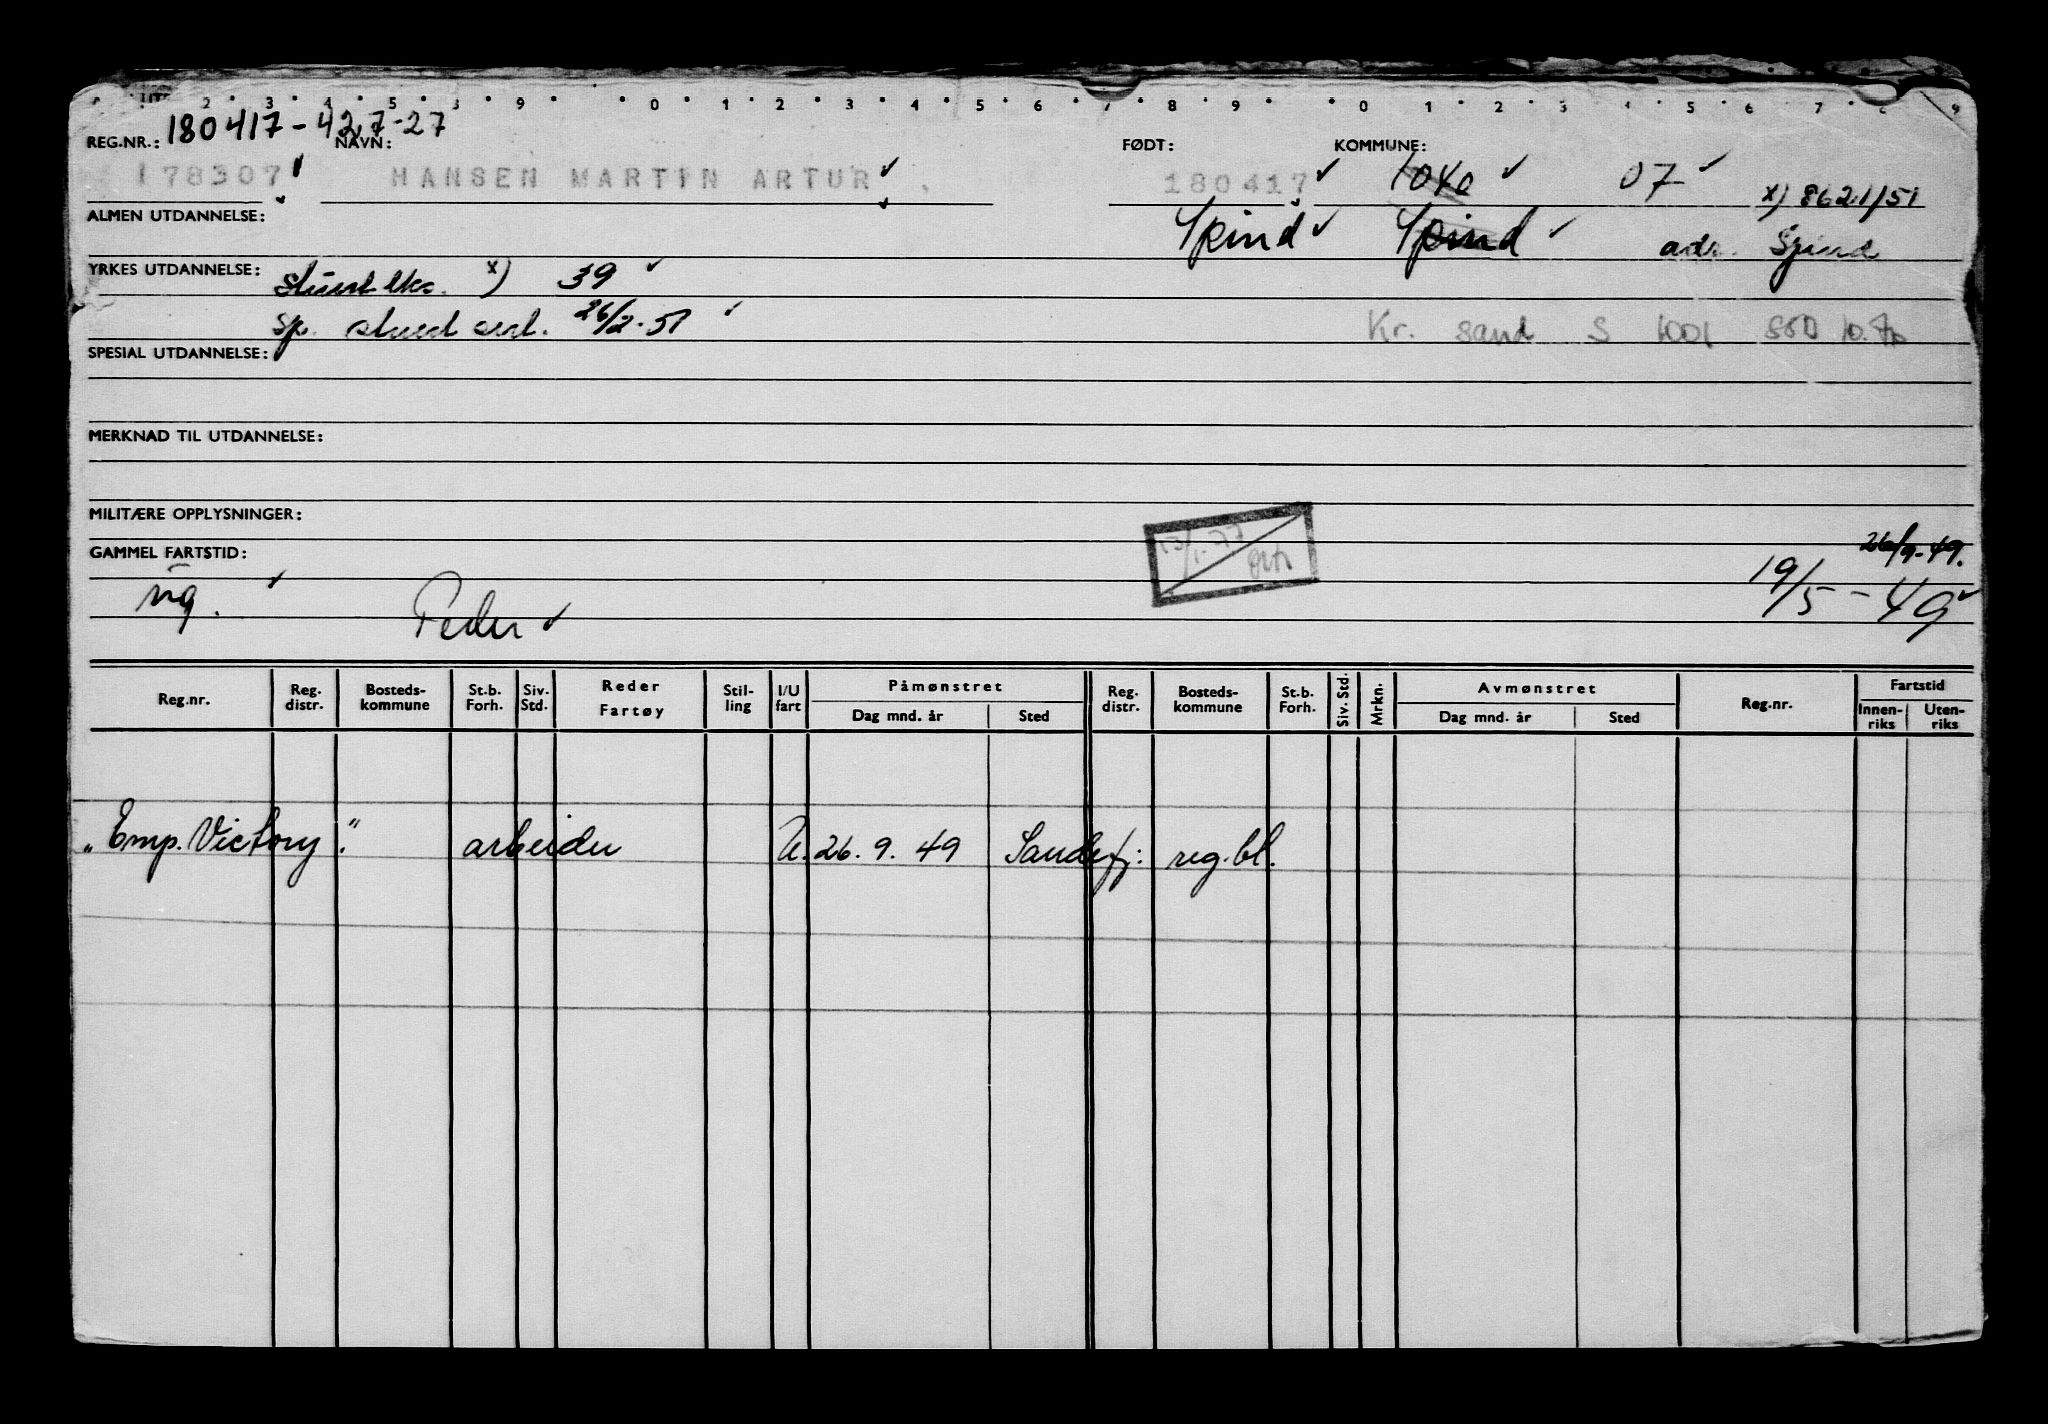 2 3 4 5 8 9 0 1 2 3 4 5 6 7 8 9 0 1 2 3 4 5 6 7 8 9
REG.NR.: 180417-42,7-27 NAVN: FØDT: KOMMUNE:
178307 HANSEN MARTIN ARTUR 180417 1040 07 x) 8621/51
ALMEN UTDANNELSE: Spind Spind adr. Spind
YRKES UTDANNELSE: x) 39
sp. 26/2-51 Kr. sand S 1001
SPESIAL UTDANNELSE:
MERKNAD TIL UTDANNELSE:
MILITÆRE OPPLYSNINGER:
GAMMEL FARTSTID: 26/9-49.
Peder 19/5-49
Reg.nr. Reg. distr. Bosteds- kommune St.b. Forh. Siv. Std. Reder Fartøy Stil- ling I/U fart Påmønstret Dag mnd. år Sted Reg. distr. Bosteds- kommune St.b. Forh. Siv. Std. Mrkn. Avmønstret Dag mnd. år Sted Reg.nr. Fartstid Innen- riks Uten- riks
„Emp. Victory". arbeider U. 26. 9. 49 Sandefj: reg.bl.